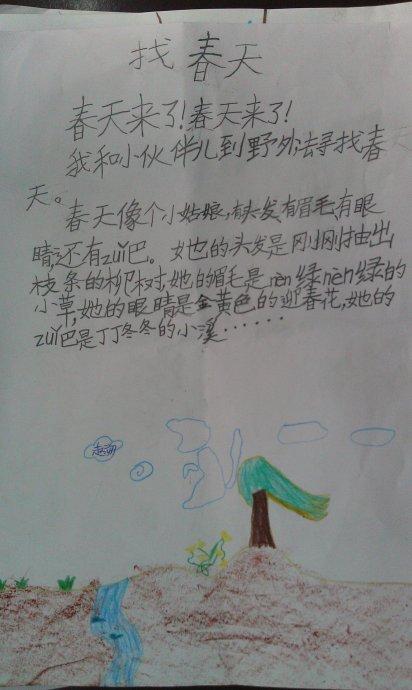 找春天
春天来了!春天来了!
我和小伙伴儿到野外去寻找春
天。
春天像个小姑娘,有头发有眉毛,有眼
睛,还有zuǐ巴。她的头发是刚刚抽出
枝条的柳树,她的眉毛是nèn绿nèn绿的
小草,她的眼睛是金黄色的迎春花,她的
zuǐ巴是丁丁冬冬的小溪……